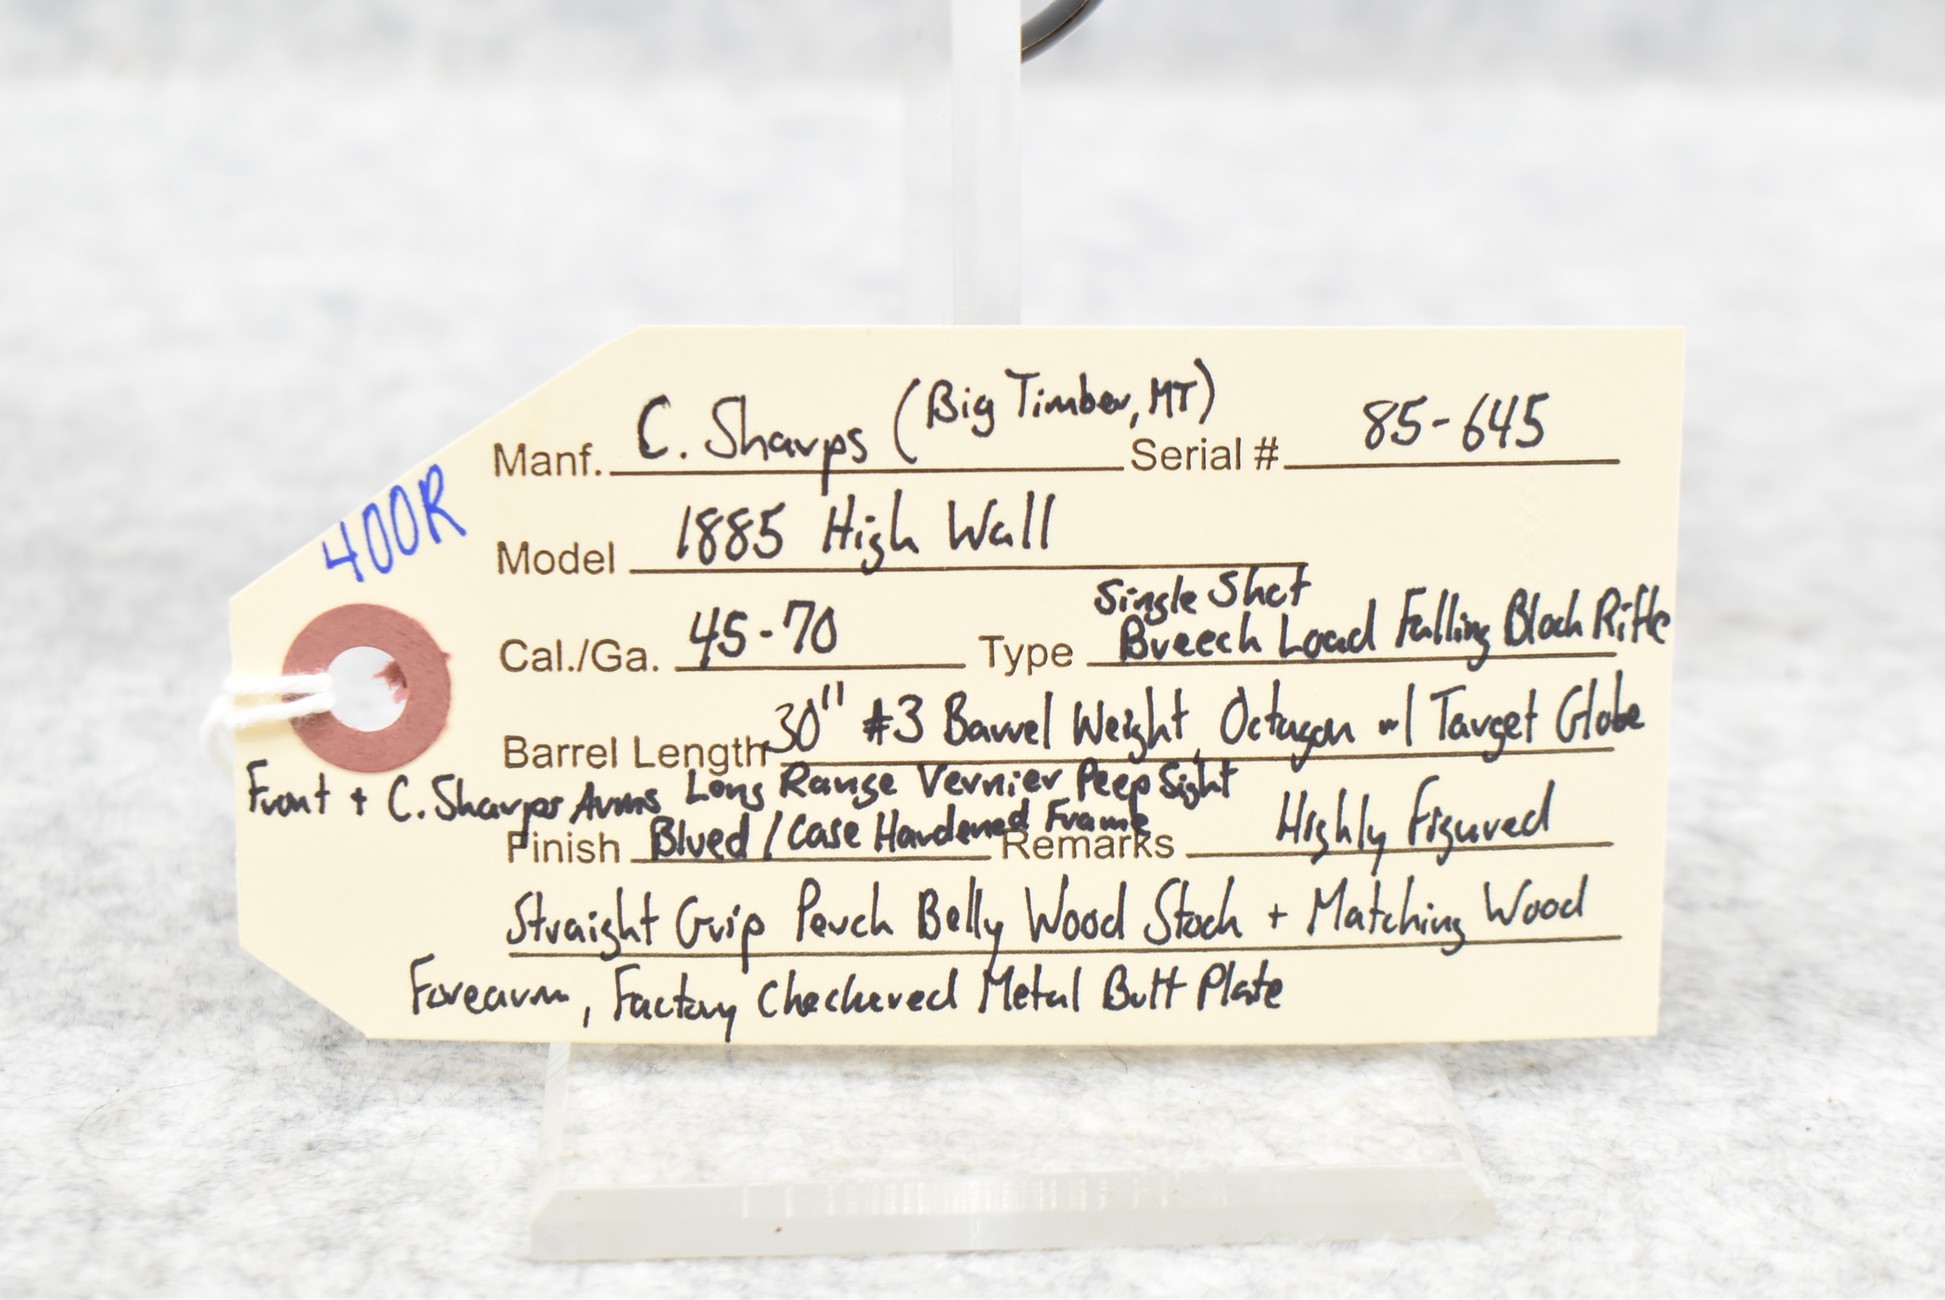 400R
Manf. C. Sharps (Big Timber, MT) Serial # 85-645
Model 1885 High Wall
Cal./Ga. 45-70 Type Single Shot
Breech Load Falling Block Rifle
Barrel Length 30" #3 Barrel Weight, Octagon w/ Target Globe
Front + C. Sharps Arms Long Range Vernier Peep Sight
Finish Blued / Case Hardened Frame Remarks Highly Figured
Straight Grip Perch Belly Wood Stock + Matching Wood
Forearm, Factory Checkered Metal Butt Plate